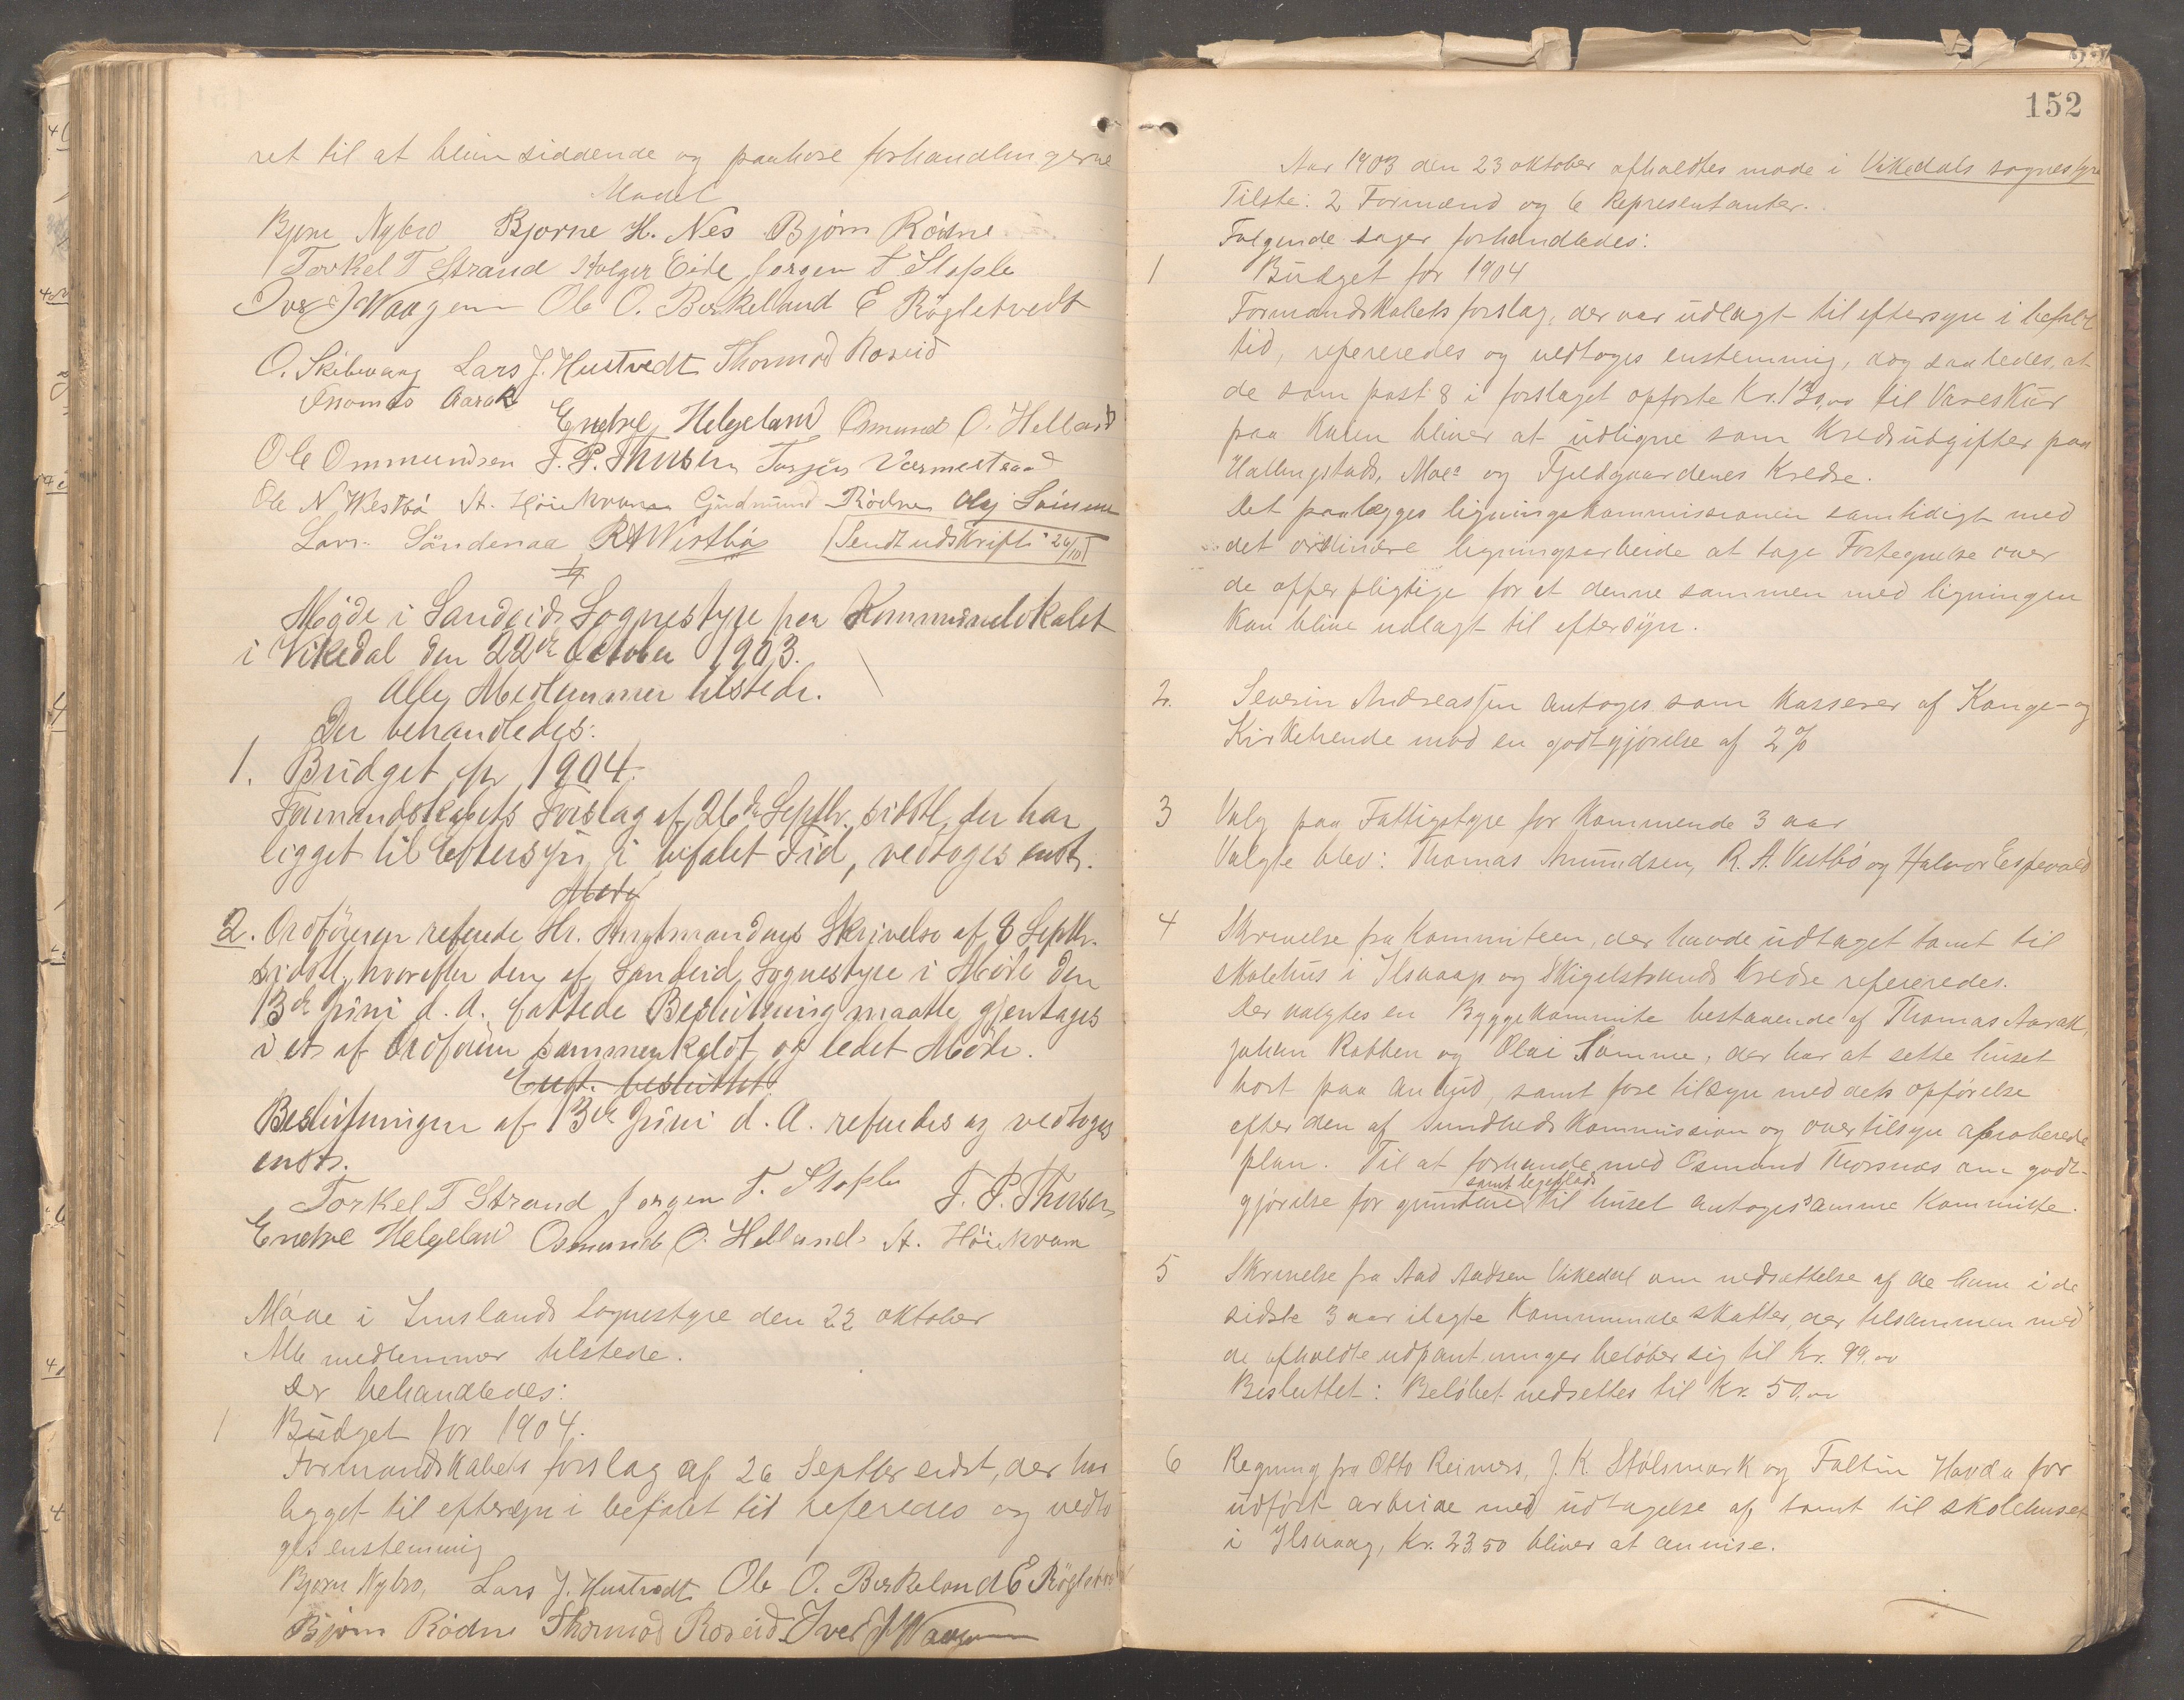 ret til at blive siddende og paahøre forhandlingerne
Mødet
Bjørn Nybro Bjorne H. Nes Bjørn Rödne
Torkel T Strand Holger Eide Jørgen T. Stople
Iver J Waagen Ole O. Birkeland E Røgletvedt
O. Skibevaag Lars J. Hustvedt Thormod Roseid
Thomas Aarak
Endre Helgeland Osmund O. Helland
Ole Ommundsen F. P. Thusen Torger Vormestrand
Ole N Westbö A. Höiekvam Gudmund Rödne Olaj Sömme
Lars Söndenaa R A Westbö Sendt udskrift 26/10
Møde i Sandeids Sognestyre paa Kommunelokalet
i Vikedal den 22de October 1903.
Alle Medlemmer tilstede.
Der behandledes:
1. Budget for 1904.
Formandskabets Forslag af 26de Septbr. sidstl. der har
ligget til Eftersyn i befalet Tid, vedtoges enst.
Møde
2. Ordføreren refererede Hr. Amtmandens Skrivelse af 8 Septbr.
sidstl., hvorefter den af Sandeid Sognestyre i Møde den
13de Juni d. A. fattede Beslutning maatte gjentages
i et af Ordføreren sammenkaldt og ledet Møde.
Enst. besluttet:
Beslutningen af 13de Juni d. A. referedes og vedtoges
enst.
Torkel T Strand Jørgen T. Stople F. P. Thusen
Endre Helgeland Osmund O. Helland A. Höiekvam
Møde i Imslands Sognestyre den 22 oktober
Alle medlemmer tilstede.
Der behandledes:
1 Budget for 1904.
Formandskabets forslag af 26 Septber sidst, der har
ligget til eftersyn i befalet tid referedes og vedto
ges enstemmig
Bjørn Nybro, Lars J. Hustvedt Ole O. Birkeland E Røgletvedt
Bjørn Rödne Thormod Roseid Iver J Waagen
152
Aar 1903 den 23 oktober afholdtes møde i Vikedals sognestyre
Tilste: 2 Formænd og 6 Representanter.
Følgende sager forhandledes:
1 Budget for 1904
Formandskabets forslag, der var udlagt til eftersyn i befalet
tid, refereredes og vedtoges enstemmig, dog saaledes, at
de som post 8 i forslaget opførte Kr. 130,00 til Vareskur
paa Kaien bliver at udligne som Kredsudgifter paa
Hallingstads, Moe og Fjeldgaardenes Kredse.
Det paalægges ligningskommissionen samtidigt med
det ordinære ligningsarbeide at tage Fortegnelse over
de offerpligtige for at denne sammen med ligningen
kan blive udlagt til eftersyn.
2. Severin Andreassen antoges som Kasserer af Konge- og
Kirketiende mod en godtgjørelse af 2 %
3 Valg paa Fattigstyre for Kommende 3 aar
Valgte blev: Thomas Amundsen, R. A. Vestbö og Halvor Espevold
4 Skrivelse fra Kommiteen, der havde udtaget tomt til
skolehus i Ilsvaag og Skigelstrands Kredse refereredes.
Der valgtes en Byggekommite bestaaende af Thomas Aarak,
Johan Rabben og Olai Sømme, der har at sette huset
bort paa anbud, samt føre tilsyn med dets opførelse
efter den af sundhedskommission og overtilsyn aproberede
plan. Til at forhandle med Osmund Thorsnæs om godt-
samt legeplads
gjørelse for grunden til huset antoges samme Kommitte.
5 Skrivelse fra Aad Aadsen Vikedal om nedsættelse af de ham i de
sidste 3 aar ilagte Kommunale skatter, der tilsammen med
de afholdte udpantninger beløber sig til Kr. 99,00
Besluttet: Beløbet nedsettes til Kr. 50,00
6 Regning fra Otto Reiners, J. K. Stölsmark og Faltin Havda for
udført arbeide med udtagelse af tomt til skolehuset
i Ilsvaag, Kr. 23.50 bliver at anvise.